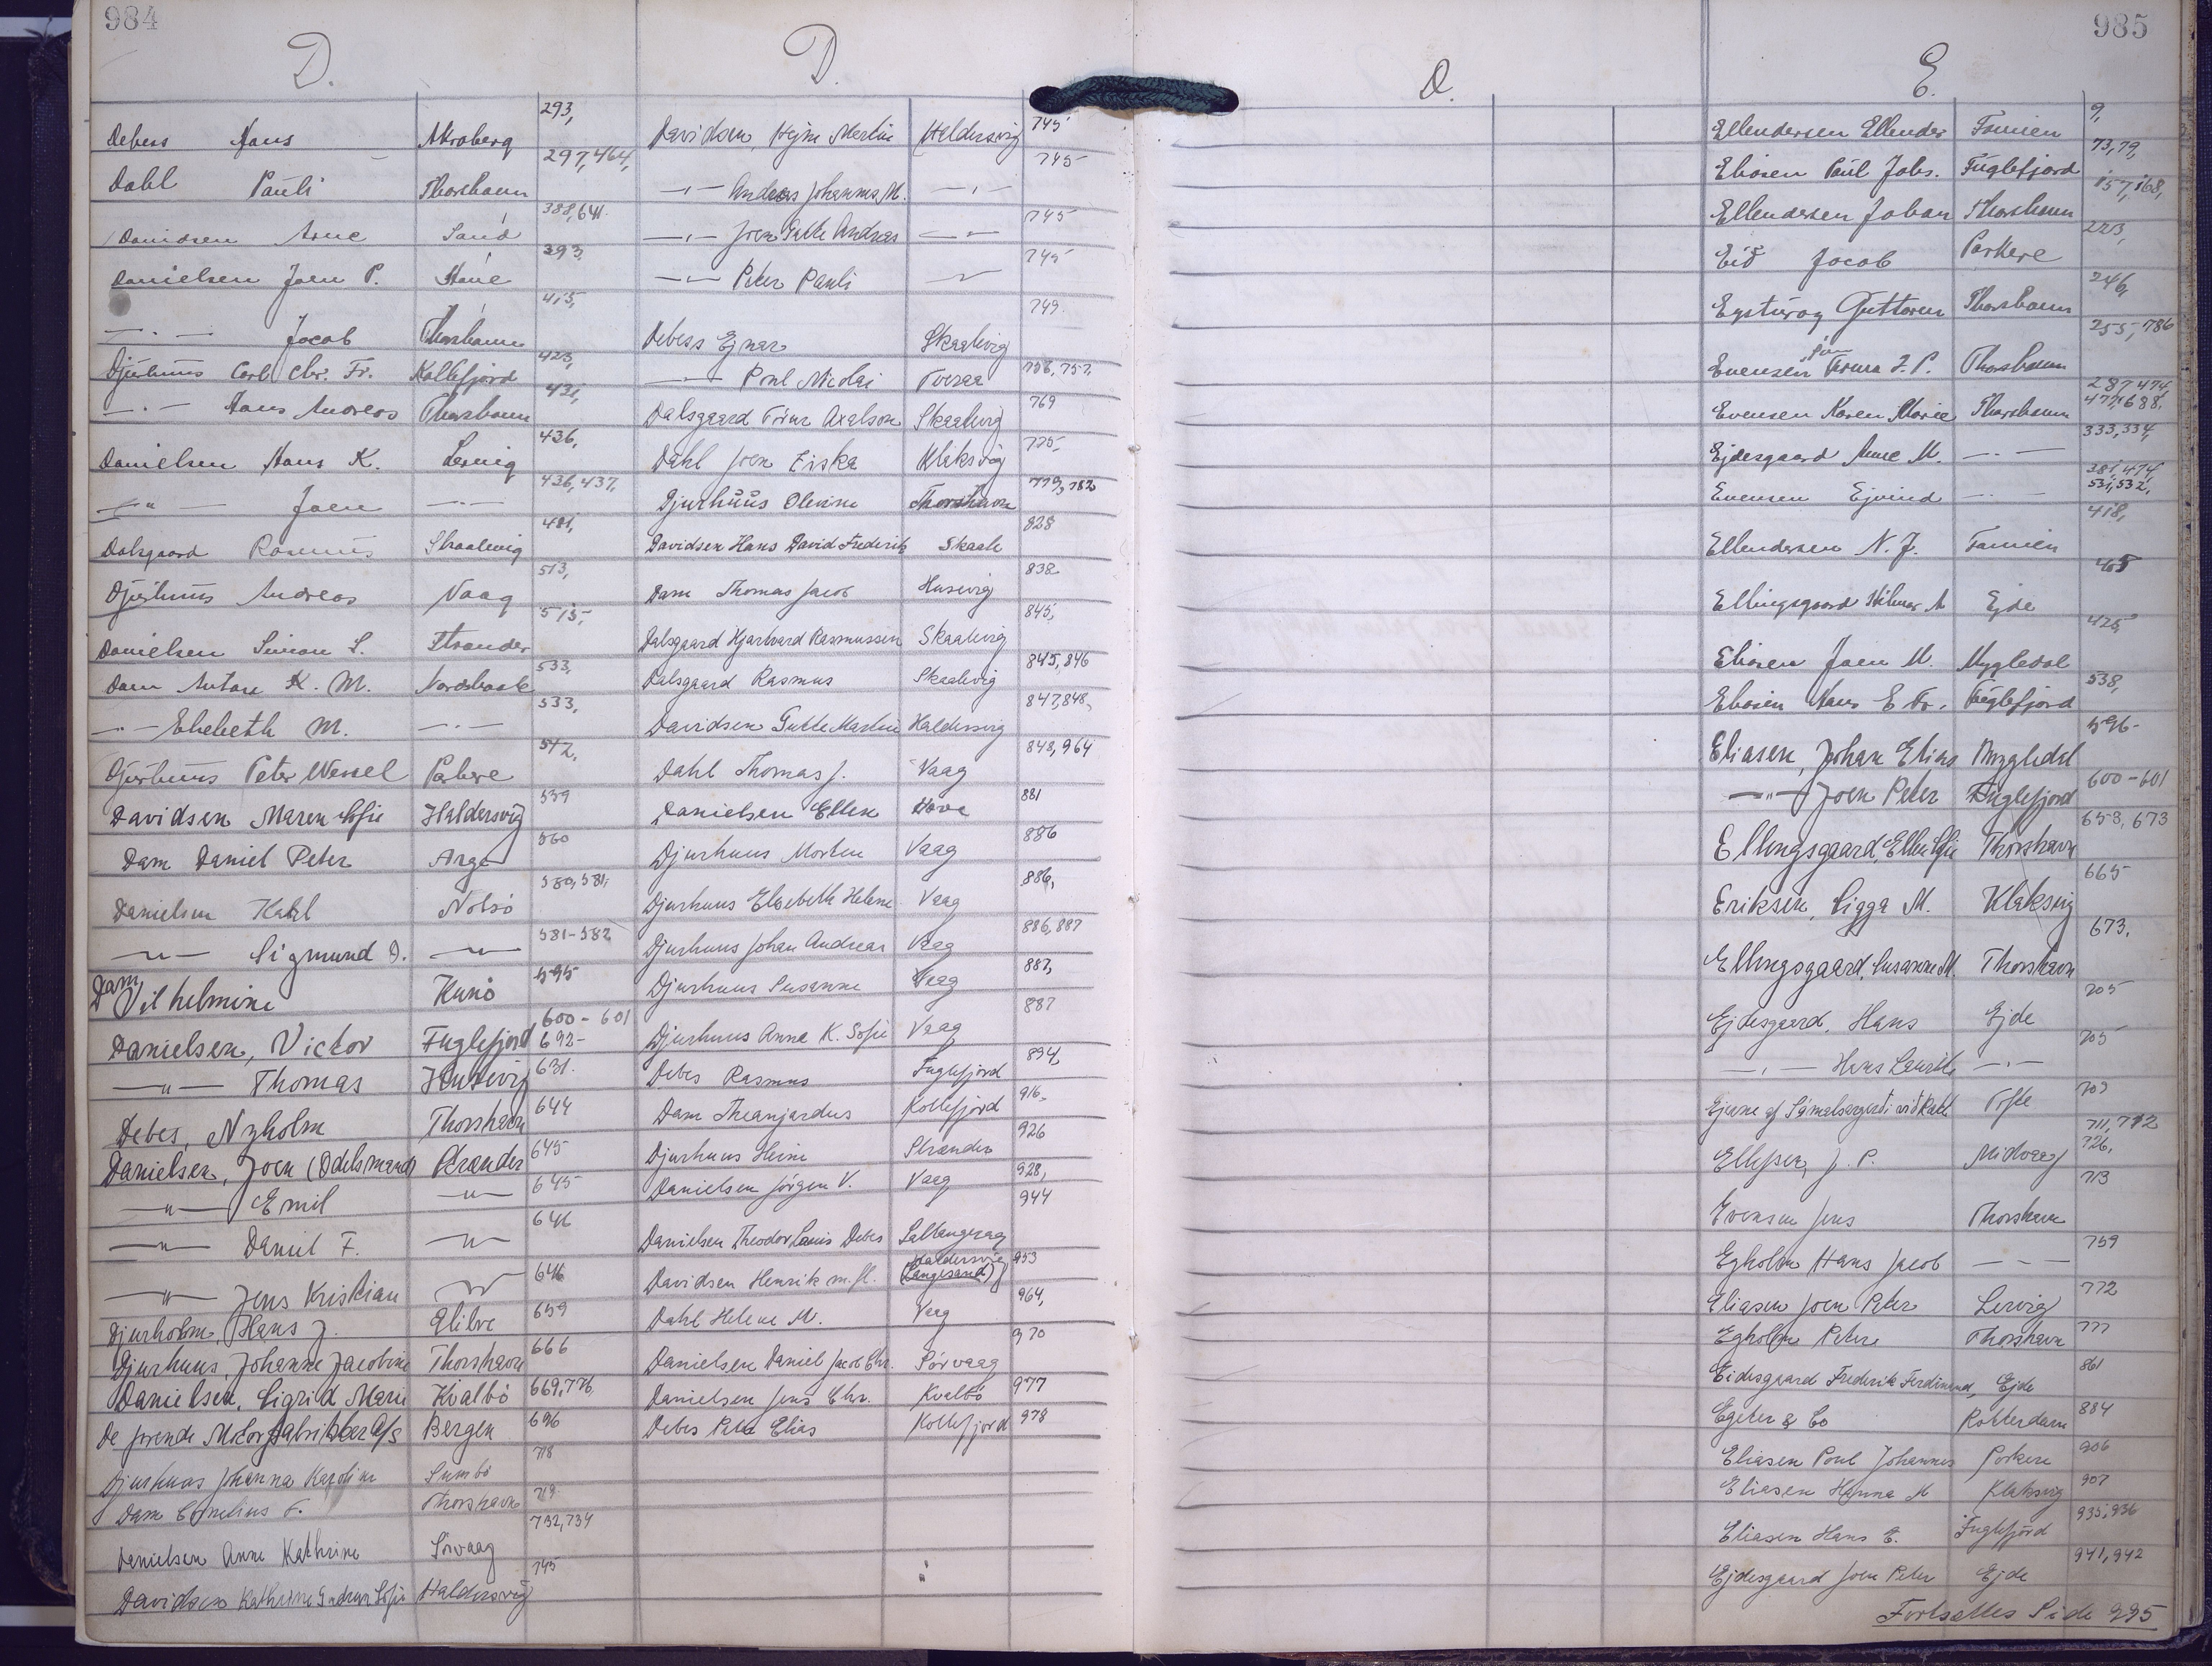 984
D.
Debess Hans Akraberg 293,
Dahl Pauli Thorshavn 297, 464,
Davidsen Arne Sand 388, 641.
Danielsen Joen P. 393,
— . — Jacob Thorshavn 415,
Djurhuus Carl Chr. Fr. Kollefjord 423,
— . — Hans Andreas Thorshavn
Danielsen Hans K. Lervig 436,
— " — Joen — . — 436, 437,
Dalsgaard Rasmus Skaalevig 481,
Djurhuus Andreas Vaag 513,
Danielsen Simon S. Strander 515,
Dam Antone K. M. Nordskaale 533,
— . — Elsebeth M. — . — 533,
Djurhuus Peter Wessel Porkere 512,
Davidsen Maren Sofie Haldersvig 559
Dam Daniel Peter Arge 560
Danielsen Kahl Nolsö 580, 581,
— " — Sigmund D. — " — 581-582
Dam Vilhelmine Kunö 595
Danielsen, Victor Fuglefjord 600 - 601 692-
— " — Thomas Husevig 631.
Debes, Nyholm Thorshavn 644
Danielsen, Joen (Odelsmand) Strander 645
— " — Emil — " — 645
— " — Daniel F. — " — 646
— " — Jens Kristian — " — 646
Djurholm, Hans J. Glibre 659
Djurhuus, Johanne Jacobine Thorshavn 666
Danielsen, Sigrid Marie Kvalbö 669, 776,
De forende Motorfabrikker A/S Bergen 696
Djurhuus Johanna Karoline Sumbö 718
Dam Cornelius F. Thorshavn 719.
Danielsen Anne Kathrine Sörvaag 732, 734
Davidsen Kathrine Gudrun Sofie Haldersvig 745
D.
Davidsen, Hejne Martin Haldersvig 745
— " — Andreas Johannes M. — " — 745
— " — Joen Gutte Andreas — " — 745
— " — Peter Pauli — " — 745
Debess Ejnar Skaalevig 749.
— Poul Nicolai Tveraa 756, 757,
Dalsgaard Axelson Skaalevig 769
Dahl Joen Ziska Klaksvig 775
Djurhuus Olevine Thorshavn 779, 782
Davidsen Hans David Frederik Skaale 828
Dam Thomas Jacob Husevig 838
Dalsgaard Hjartvard Rasmussen Skaalevig 845,
Dalsgaard Rasmus Skaalevig 845, 846
Davidsen Gutte Martin Haldersvig 847, 848,
Dahl Thomas J. Vaag 848, 964
Danielsen Ellen Hove 881
Djurhuus Morten Vaag 886
Djurhuus Elsebeth Helene Vaag 886,
Djurhuus Johan Andreas Vaag 886, 887
Djurhuus Susanne Vaag 887,
Djurhuus Anna K. Sofie Vaag 887
Debes Rasmus Fuglefjord 894,
Dam Theanjardus Kollefjord 916.
Djurhuus Heine Strander 926
Danielsen Jörgen V. Vaag 928,
Danielsen Theodor Louis Debes Saltangeraa 944
Davidsen Henrik m. fl. Haldersvig (Langesand) 953
Dahl Helene M. Vaag 964,
Danielsen Daniel Jacob Chr. Sörvaag 970
Danielsen Jens Chr. Kvalbö 977
Debes Peter Elias Kollefjord 978
985
D.
E.
Ellendersen Ellender Famien 9,
Eliasen Poul Johs. Fuglefjord 73, 79,
Ellendersen Johan Thorshavn 157, 168,
Eid Jacob Porkere 223,
Eysturoy Guttorm Thorshavn 246,
Evensen Firma J. P. Thorshavn 255, 786
Evensen Karen Marie Thorshavn 287, 474, 477, 688,
Ejdesgaard Anne M. — . — 333, 334,
Evensen Ejvind — . — 381, 474, 531, 532,
Ellendersen N. J. Famien 418,
Ellingsgaard Hilmar A Ejde 465
Eliasen Joen M. Mygledal 425,
Eliasen Hans E Fr. Fuglefjord 538,
Eliasen, Johan Elias Mygledal 596-
— " — Joen Peter Fuglefjord 600-601
Ellingsgaard, Ellen Sofie Thorshavn 658, 673
Eriksen, Sigga M. Klaksvig 665
Ellingsgaard, Susanne M. Thorshavn 673.
Ejdesgaard, Hans Ejde 705
— " — Hans Laurits — . — 705
Ejerne af Sámalsargerdi við Kald. Tofte 707
Ellefsen, J. P. Midvaag 711, 712 726,
Evensen Jens Thorshavn 713
Egholm Hans Jacob — - — 759
Eliasen Joen Peter Lervig 772
Egholm Peter Thorshavn 777
Eidesgaard Frederik Ferdinand, Ejde 861
Egeter & Co Rotterdam 884
Eliasen Poul Johannes Porkere 906
Eliasen Hanna M Klaksvig 907
Eliasen Hans E. Fuglefjord 935, 936
Ejdesgaard Joen Peter Ejde 941, 942
Fortsættes Side 995